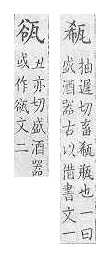 瓻
抽遲切瓻瓶也一曰
盛酒器古以借書文一
丑亦切盛酒器
或作文二